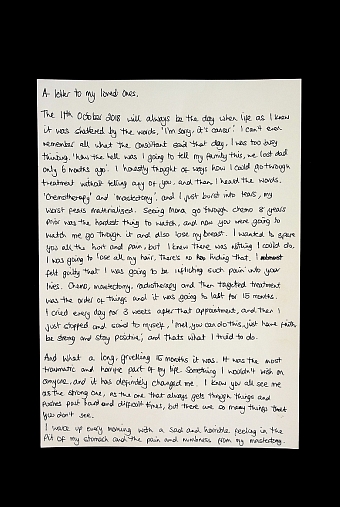 A letter to my loved ones.
The 11th October 2018 will always be the day when life as I knew
it was shattered by the words, 'I'm sorry, it's cancer'. I can't even
remember all what the consultant said that day, I was too busy
thinking, 'how the hell was I going to tell my family this, we lost dad
only 6 months ago'. I honestly thought of ways how I could go through
treatment without telling any of you, and then I heard the words,
'Chemotherapy' and 'mastectomy', and I just burst into tears, my
worst fears materialised. Seeing mama go through chemo 8 years
prior was the hardest thing to watch, and now you were going to
watch me go through it and also lose my breast. I wanted to spare
you all the hurt and pain, but I knew there was nothing I could do,
I was going to lose all my hair, there's no hiding that. I
felt guilty that I was going to be inflicting such pain into your
lives. Chemo, mastectomy, radiotherapy and then targeted treatment
was the order of things and it was going to last for 15 months.
I cried every day for 3 weeks after that appointment, and then I
just stopped and said to myself, 'Mel, you can do this, just have faith,
be strong and stay positive', and thats what I tried to do.
And what a long, gruelling 15 months it was. It was the most
traumatic and horrific part of my life. Something I wouldn't wish on
anyone, and it has definitely changed me. I know you all see me
as the strong one, as the one that always gets through things and
pushes past hard and difficult times, but there are so many things that
you don't see.
I wake up every morning with a sad and horrible feeling in the
pit of my stomach and the pain and numbness from my mastectomy.